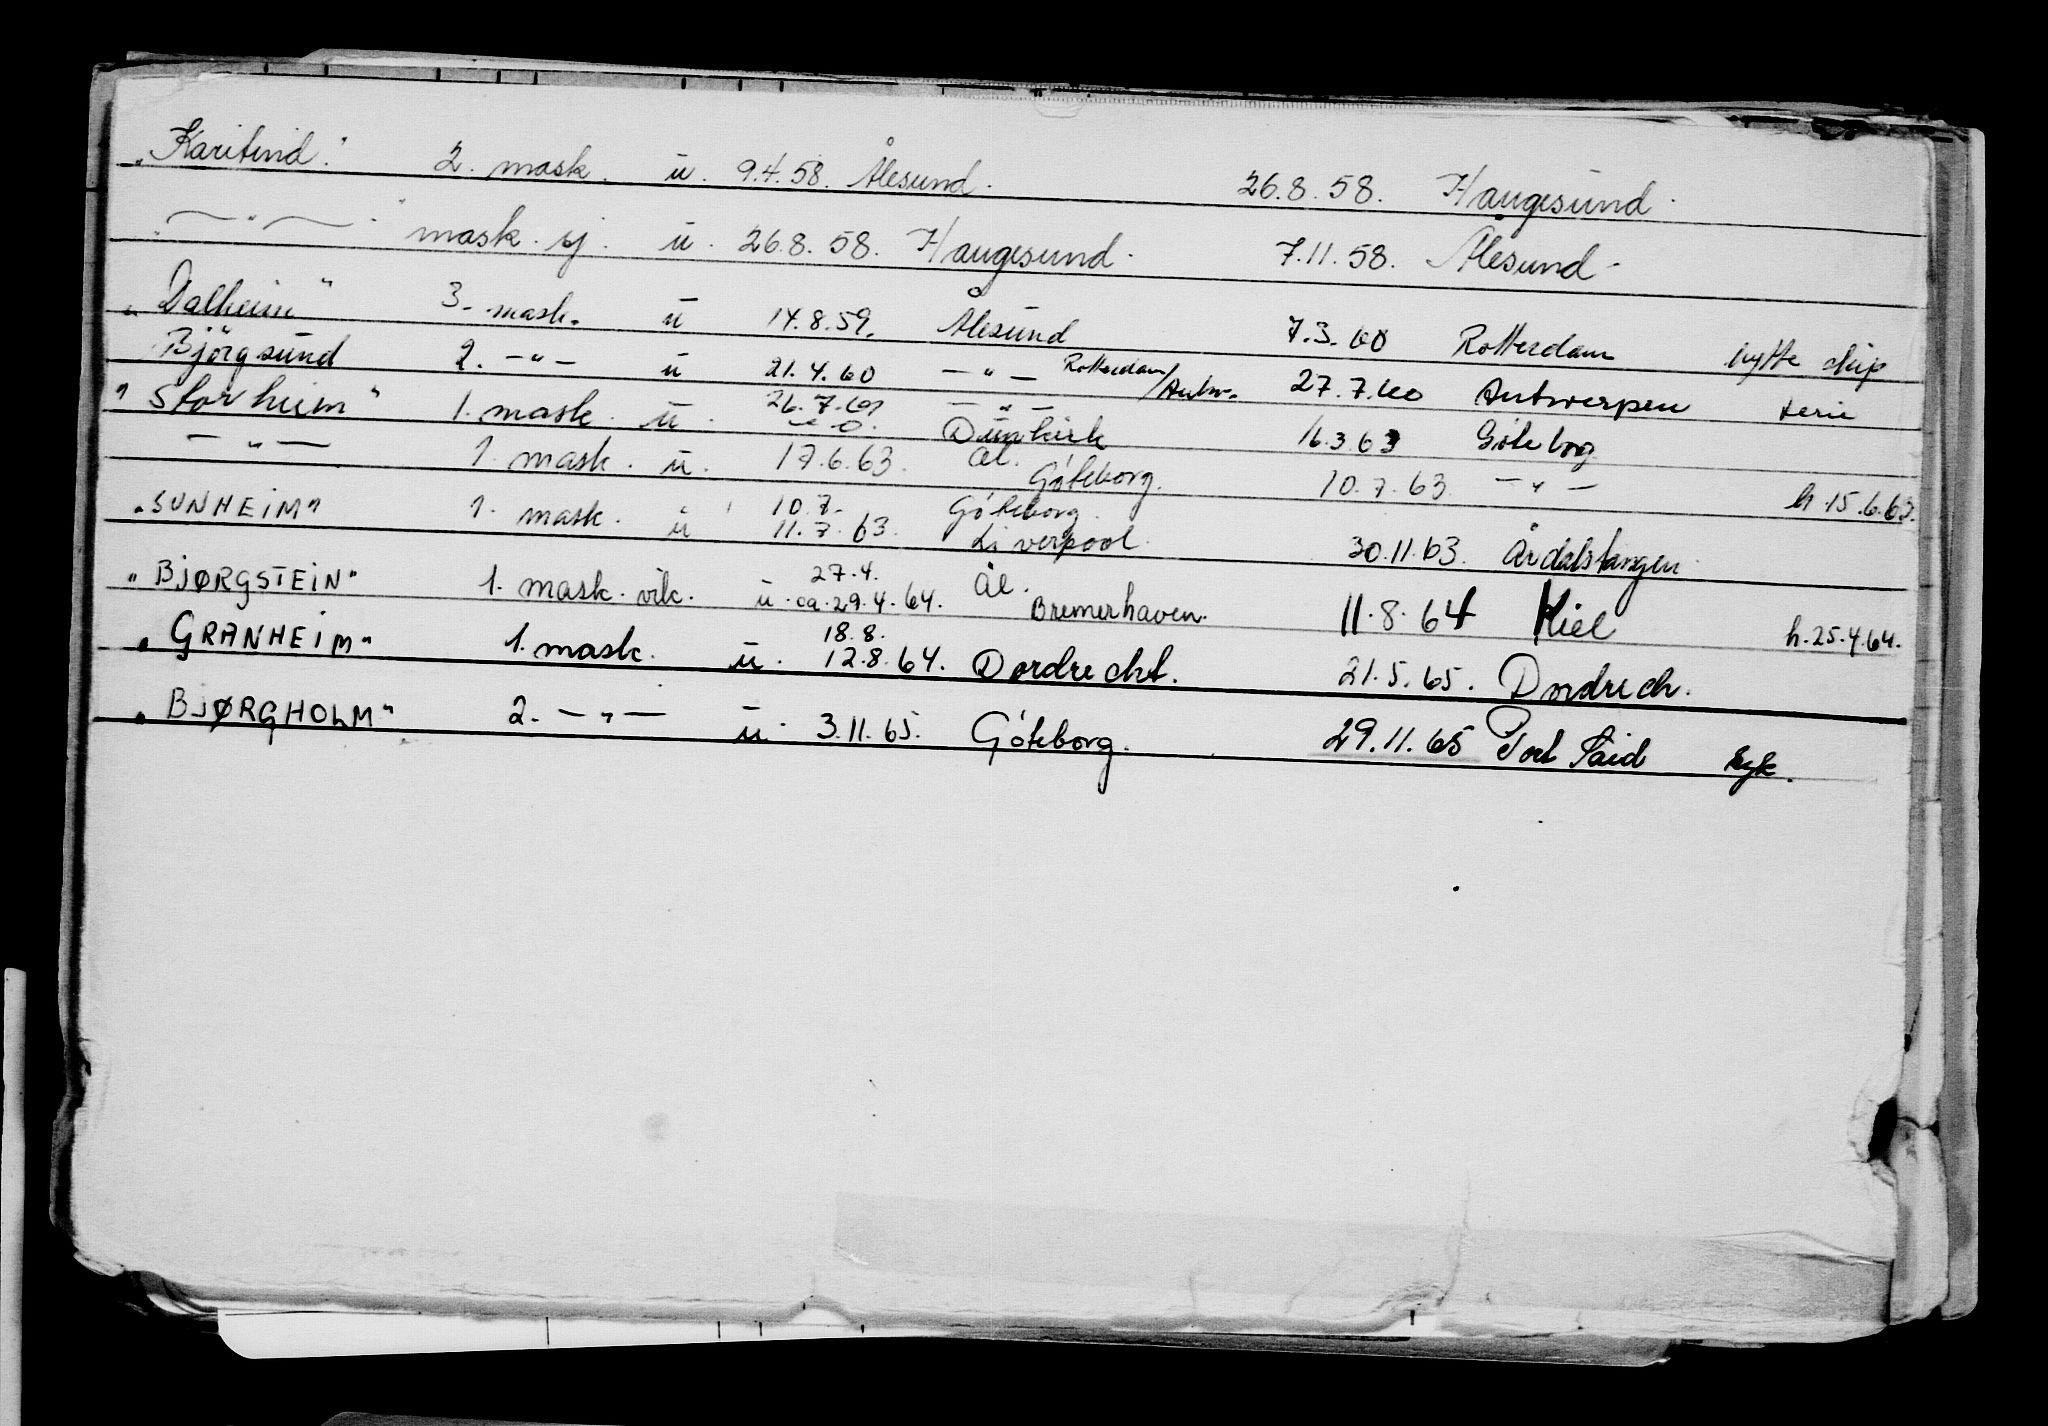 "Karitind." 2. mask. u. 9.4.58. Ålesund. 26.8.58. Haugesund.
— " — mask. sj. u. 26.8.58. Haugesund. 7.11.58. Ålesund.
"Dalheim" 3. mask. u 14.8.59. Ålesund 7.3.60 Rotterdam bytte skip
Bjørgsund 2. — " — u 21.4.60 — " — Rotterdam/Antw. 27.7.60 Antwerpen ferie
"Storheim" 1. mask. u. 26.7.62 — " — Dunkirk 16.3.63 Göteborg
— " — 1. mask. u. 17.6.63. Ål. Göteborg. 10.7.63. — " — h. 15.6.63.
"SUNHEIM" 1. mask. u 10.7. 11.7.63. Göteborg. Liverpool. 30.11.63. Årdalstangen
"BJØRGSTEIN" 1. mask. vik. u. 27.4. ca. 29.4.64. Ål. Bremerhaven. 11.8.64 Kiel h. 25.4.64.
"GRANHEIM" 1. mask. u. 18.8. 12.8.64. Dordrecht. 21.5.65. Dordrech.
"BJØRGHOLM" 2. — " — u. 3.11.65. Göteborg. 29.11.65 Port Said syk.